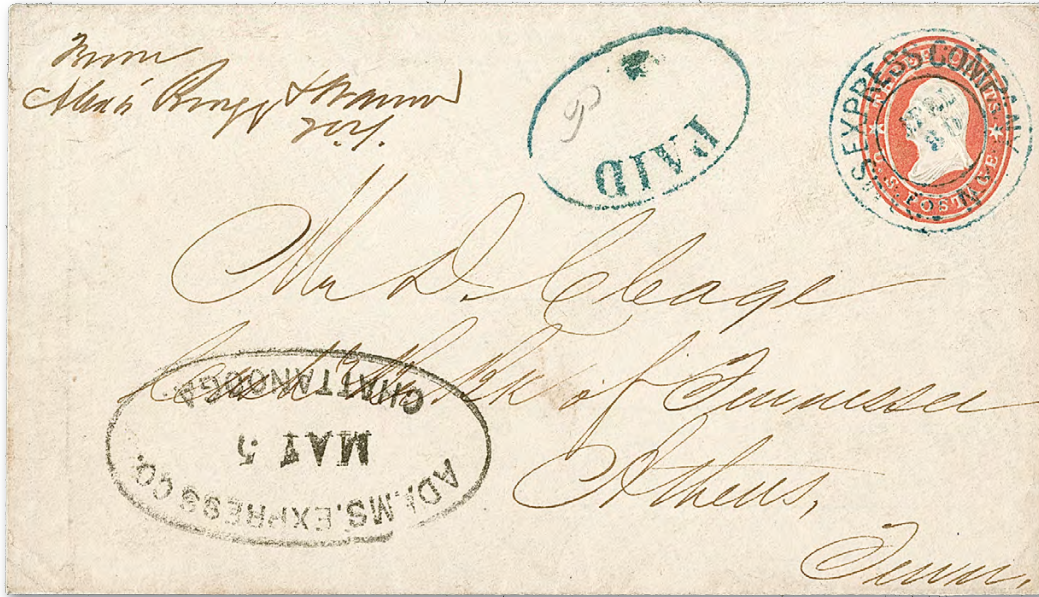 From
PAID
EXPRESS COMPANY
U.S. POSTAGE
Mr D. Cleage
Bk of Tennessee
Athens,
Tenn,
ADAMS. EXPRESS CO.
MAY 5
CHATTANOOGA